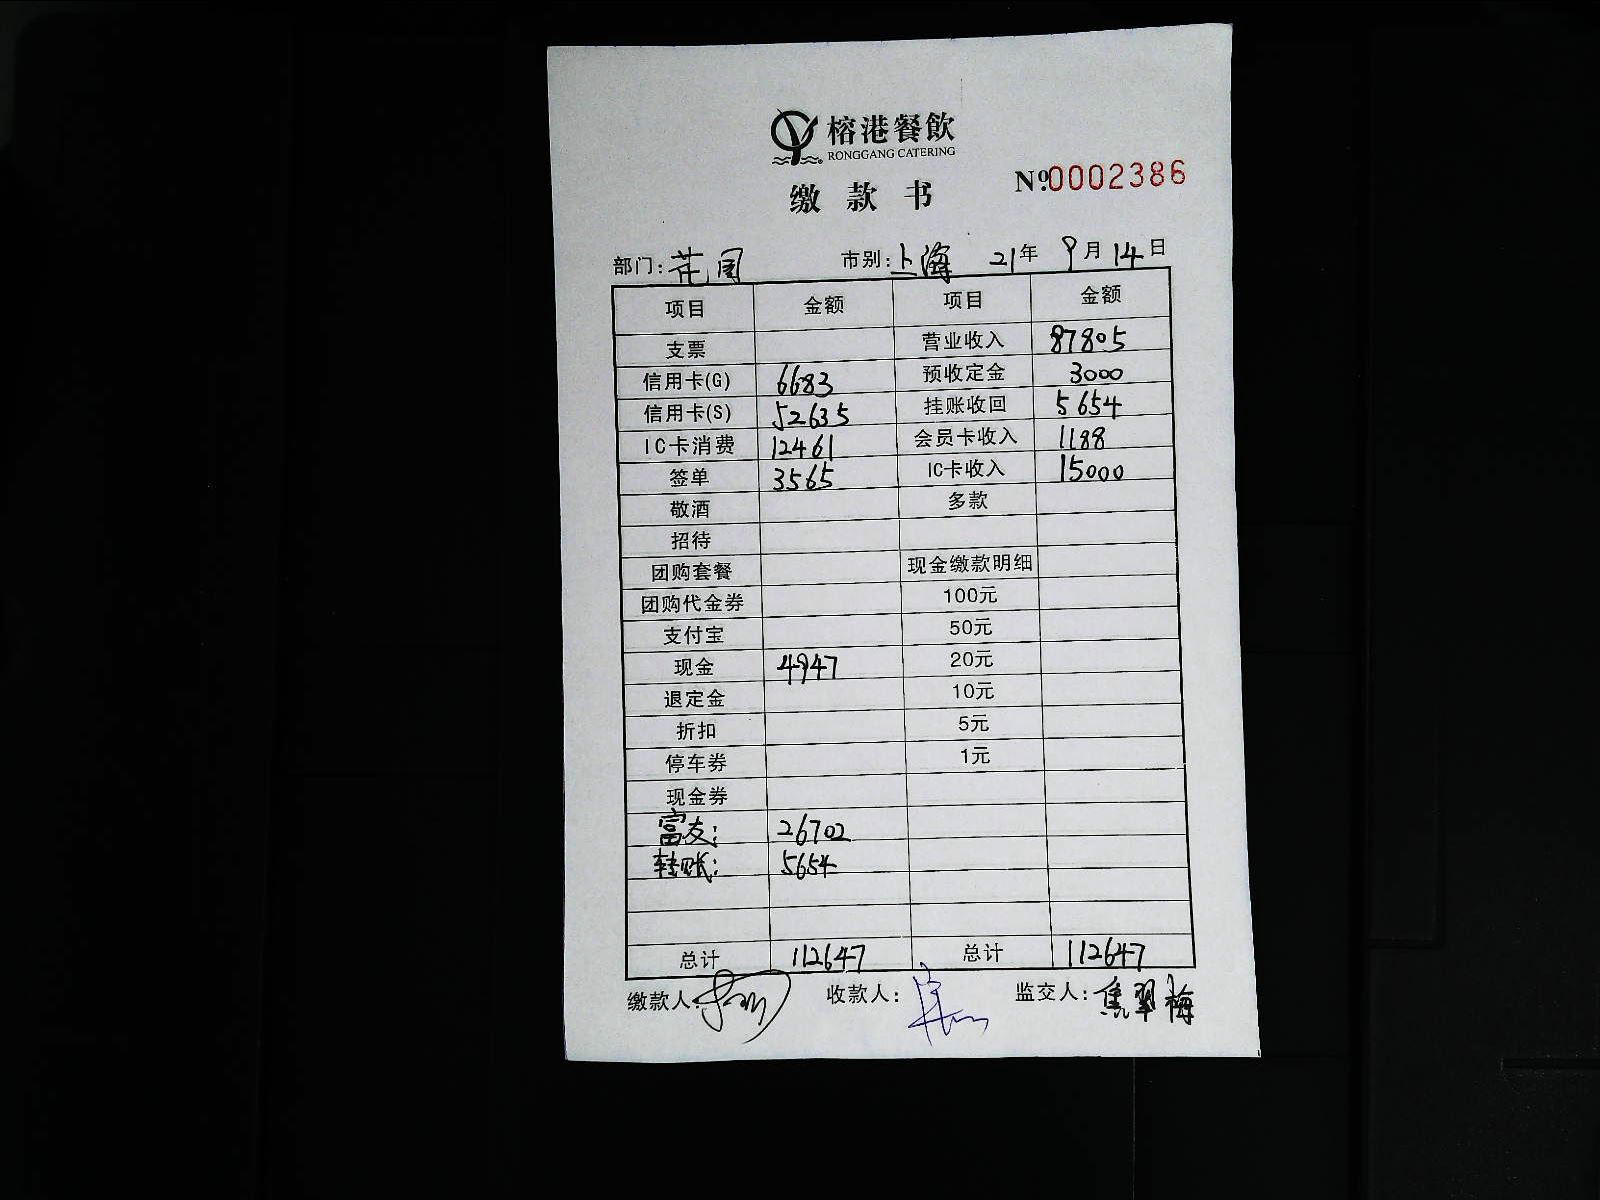 榕港餐飲
RONGGANG CATERING
缴款书 №0002386
部门:花园 市别:上海 21年9月14日
项目 金额 项目 金额
支票 营业收入 87805
信用卡(G) 6683 预收定金 3000
信用卡(S) 52635 挂账收回 5654
IC卡消费 12461 会员卡收入 1188
签单 3565 IC卡收入 15000
敬酒 多款
招待
团购套餐 现金缴款明细
团购代金券 100元
支付宝 50元
现金 4947 20元
退定金 10元
折扣 5元
停车券 1元
现金券
富友: 26702
转账: 5654
总计 112647 总计 112647
缴款人: 收款人: 监交人:焦翠梅